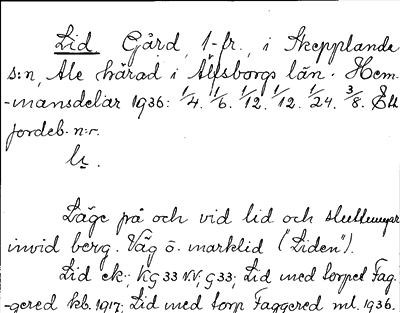 Lid Gård, 1-fr., i Skepplanda
s:n, Ale härad i Älvsborgs län. Hem-
-mansdelar 1936: 1/4. 1/6. 1/12. 1/12. 1/24. 3/8. Ett
jordeb. n:r.
Läge på och vid lid och
invid berg. Väg ö. marklid ("Liden").
Lid ek; KG 33 NV, G 33; Lid med torpet Fag-
-gered kb. 1917; Lid med torp Faggered ml. 1936.